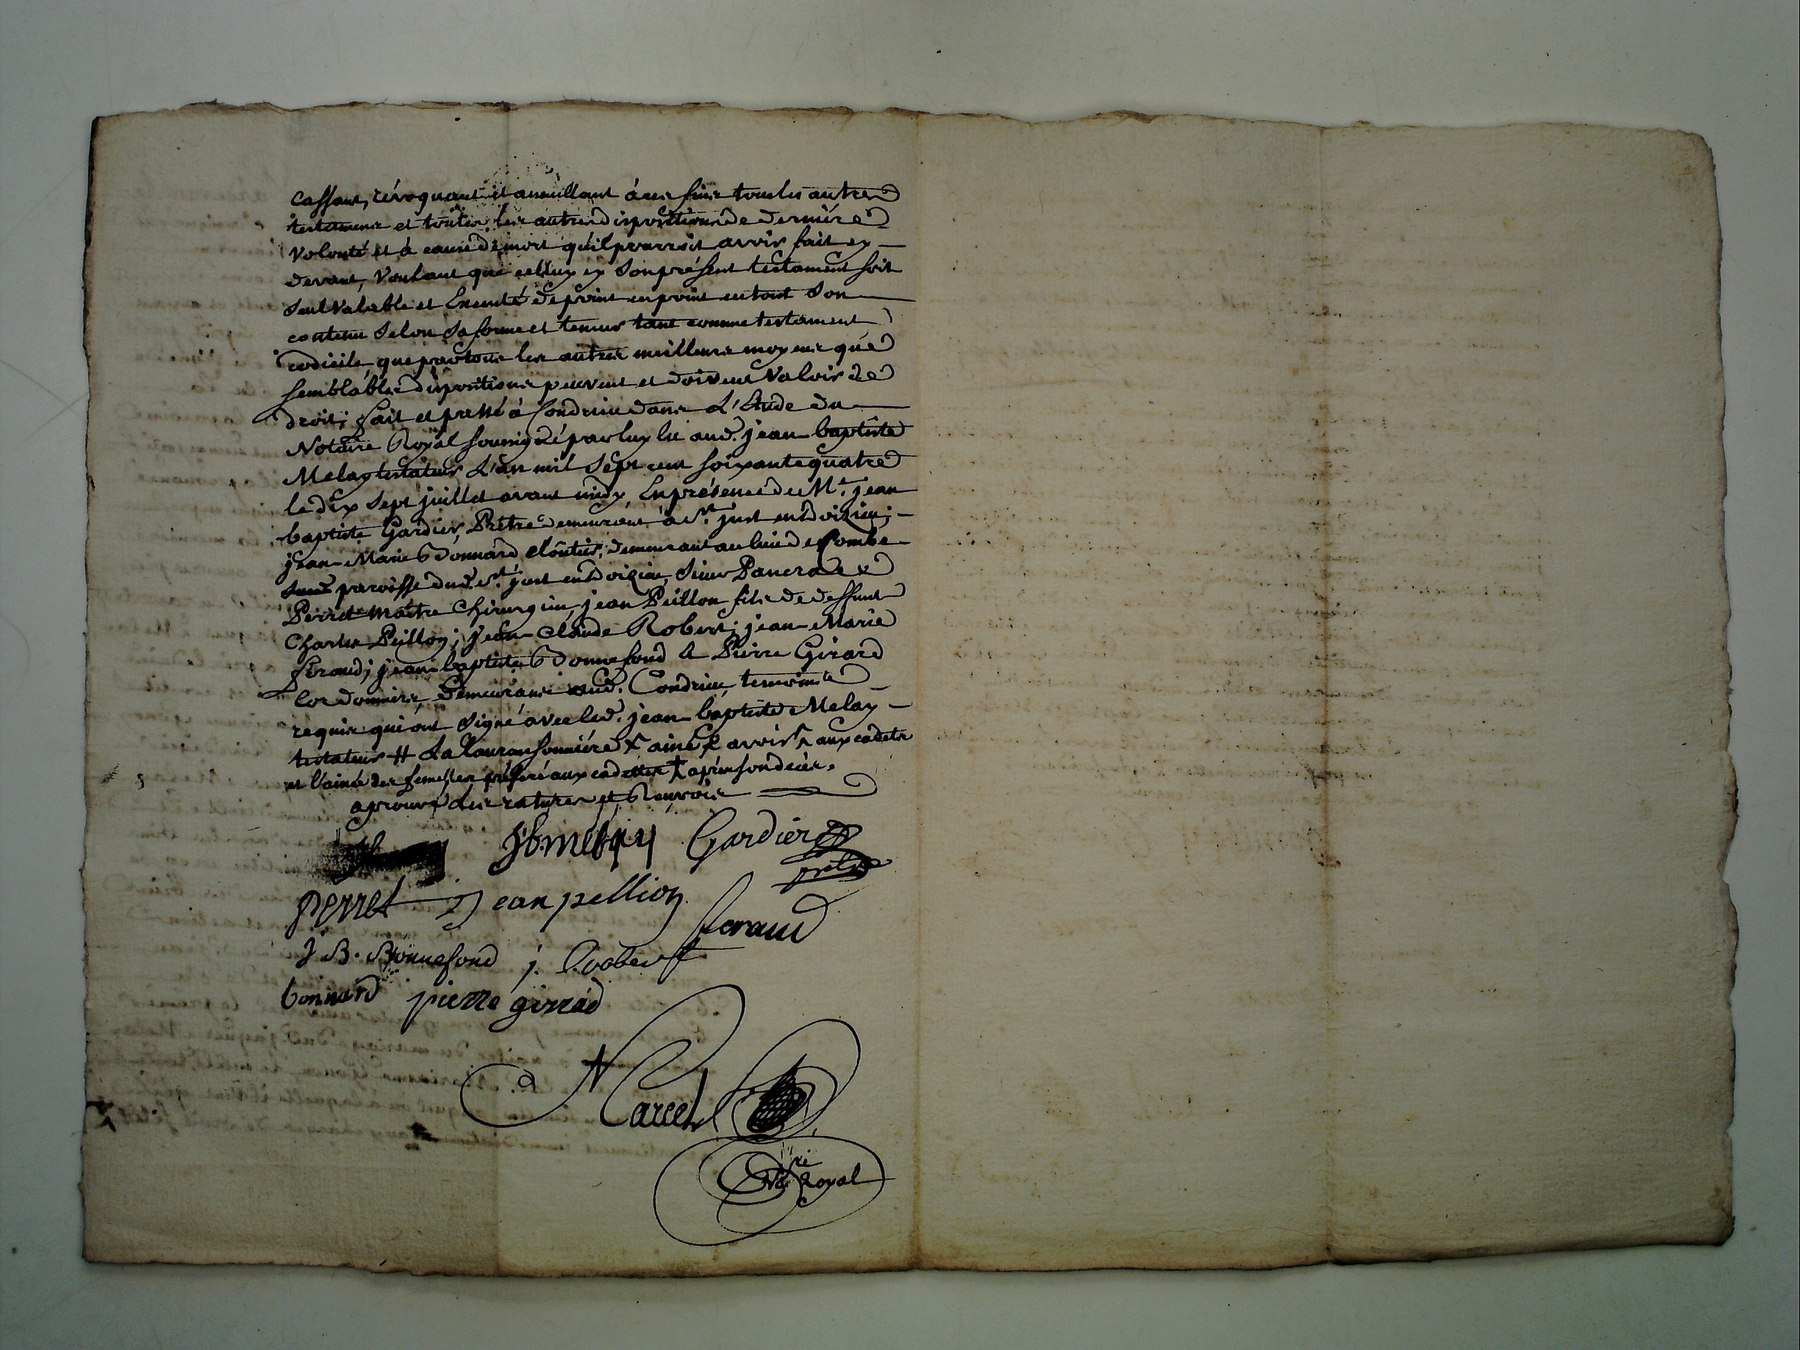 cassant, révoquant et annullant á ces fins toutes autres
testamens et toutes les autres dispositions de derniére
volonté et á cause de mort qu'il pourroit avoir fait cy
devant, voulant que celluy cy son présent testament soit
seul valable et Executé de point en point en tout son
contenu selon sa forme et teneur tant comme testament
codicile, que par tous les autres meilleurs moyens que
semblables dispositions peuvent et doivent valoir de
droit; fait et passé á Condrieu dans L'Etude du
Notaire Royal soussigné par luy lu aud. jean baptiste
Melay testateur L'an mil sept cent soixante quatre
le dix sept juillet avant midy, En présence de Mr. jean
baptiste Gardier, Prêtre demeurant á St. just en doizieu;
jean Marie Bonnard cloûtier, demeurant au lieu de Combe
paroisse dud. St. just en doizieu, Sieur Pancrace
Perret maître chirurgien, jean Peillon fils de deffunt
Charles Peillon; jean claude Robert; jean Marie
feraud; jean baptiste Bonnefond & Pierre Girard
cordonnier, demeurans aud. Condrieu, temoins
requis qui ont signé avec led. jean baptiste Melay
testateur # La ainé avoir aux cadets
et l'ainée des femelles préferé aux cadettes aprés son decés.
aprouvé les ratures et Renvois
jbmelay Gardier
prêtre
perret Jean pellion
feraud
J B. Bonnefond j. Robert
bonnard pierre girrad
Marcel
Nre Royal